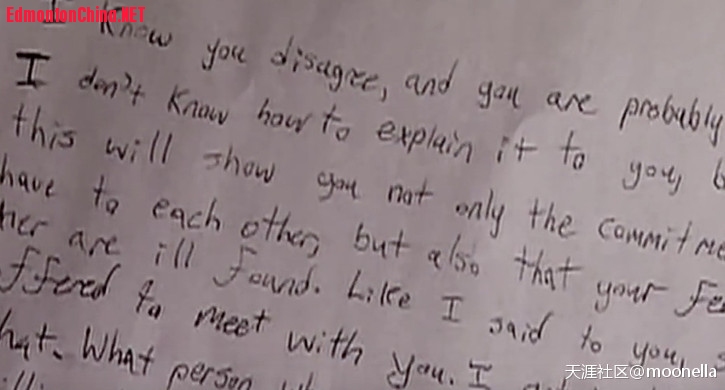 EdmontonChina.NET
I know you disagree, and you are probably
I don't know how to explain it to you,
this will show you not only the commitme
have to each other, but also that your fe
her are ill found. Like I said to you,
ffered to meet with you. I
hat. What person
天涯社区@moonella